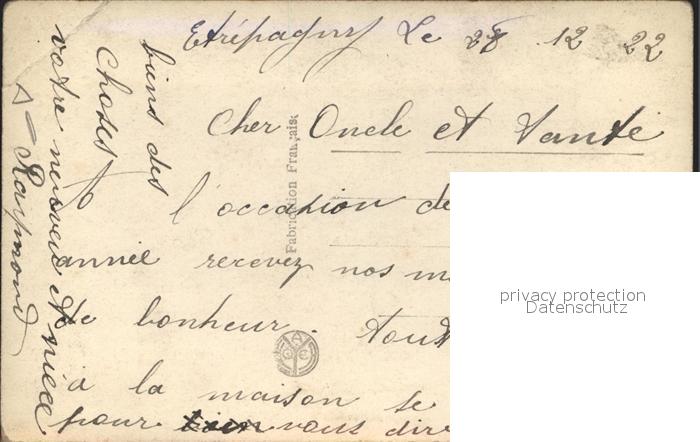 Etrépagny Le 28 12 22
Cher Oncle et tante
A l'occasion de
année recevez nos m
de bonheur. tout
a la maison se
pour bien vous dire
biens des
choses
votre neuveu et niece
Raymond
Fabrication Française
privacy protection
Datenschutz